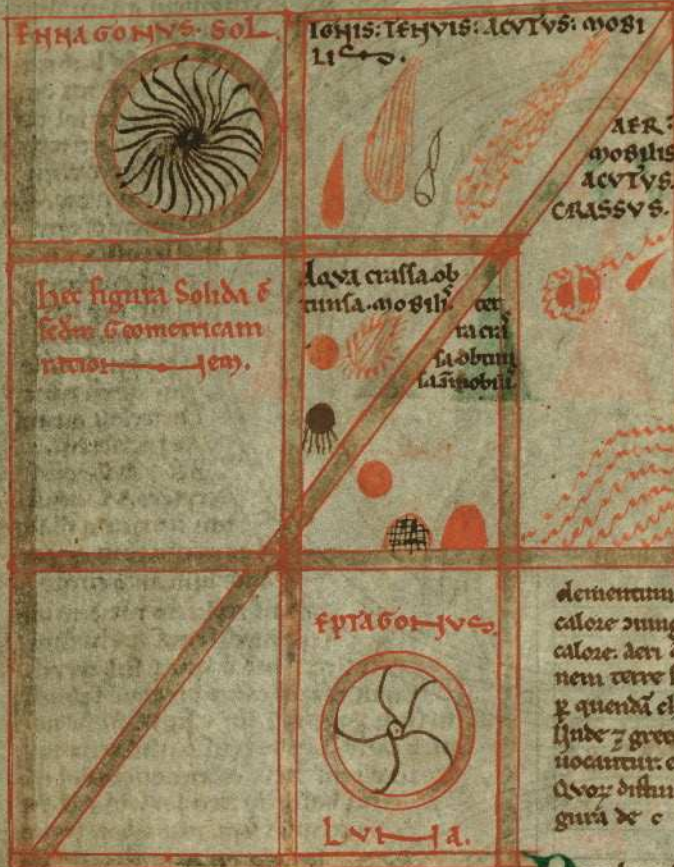 ENNAGONUS SOL.
IGNIS: TENVIS: ACVTVS: MOBI
LIS.
AER:
MOBILIS
ACVTVS.
CRASSVS.
hec figura Solida ē
sedm Geometricam
ration em.
Aqva crassa. ob
tunsa. mobilis
ter
ra cras
sa obtun
sa īmobilis
EPTAGONUS.
LUNA.
elementum
calore
calore. aeri
nem terre
ꝑ quendā
uocantur.
gura de c